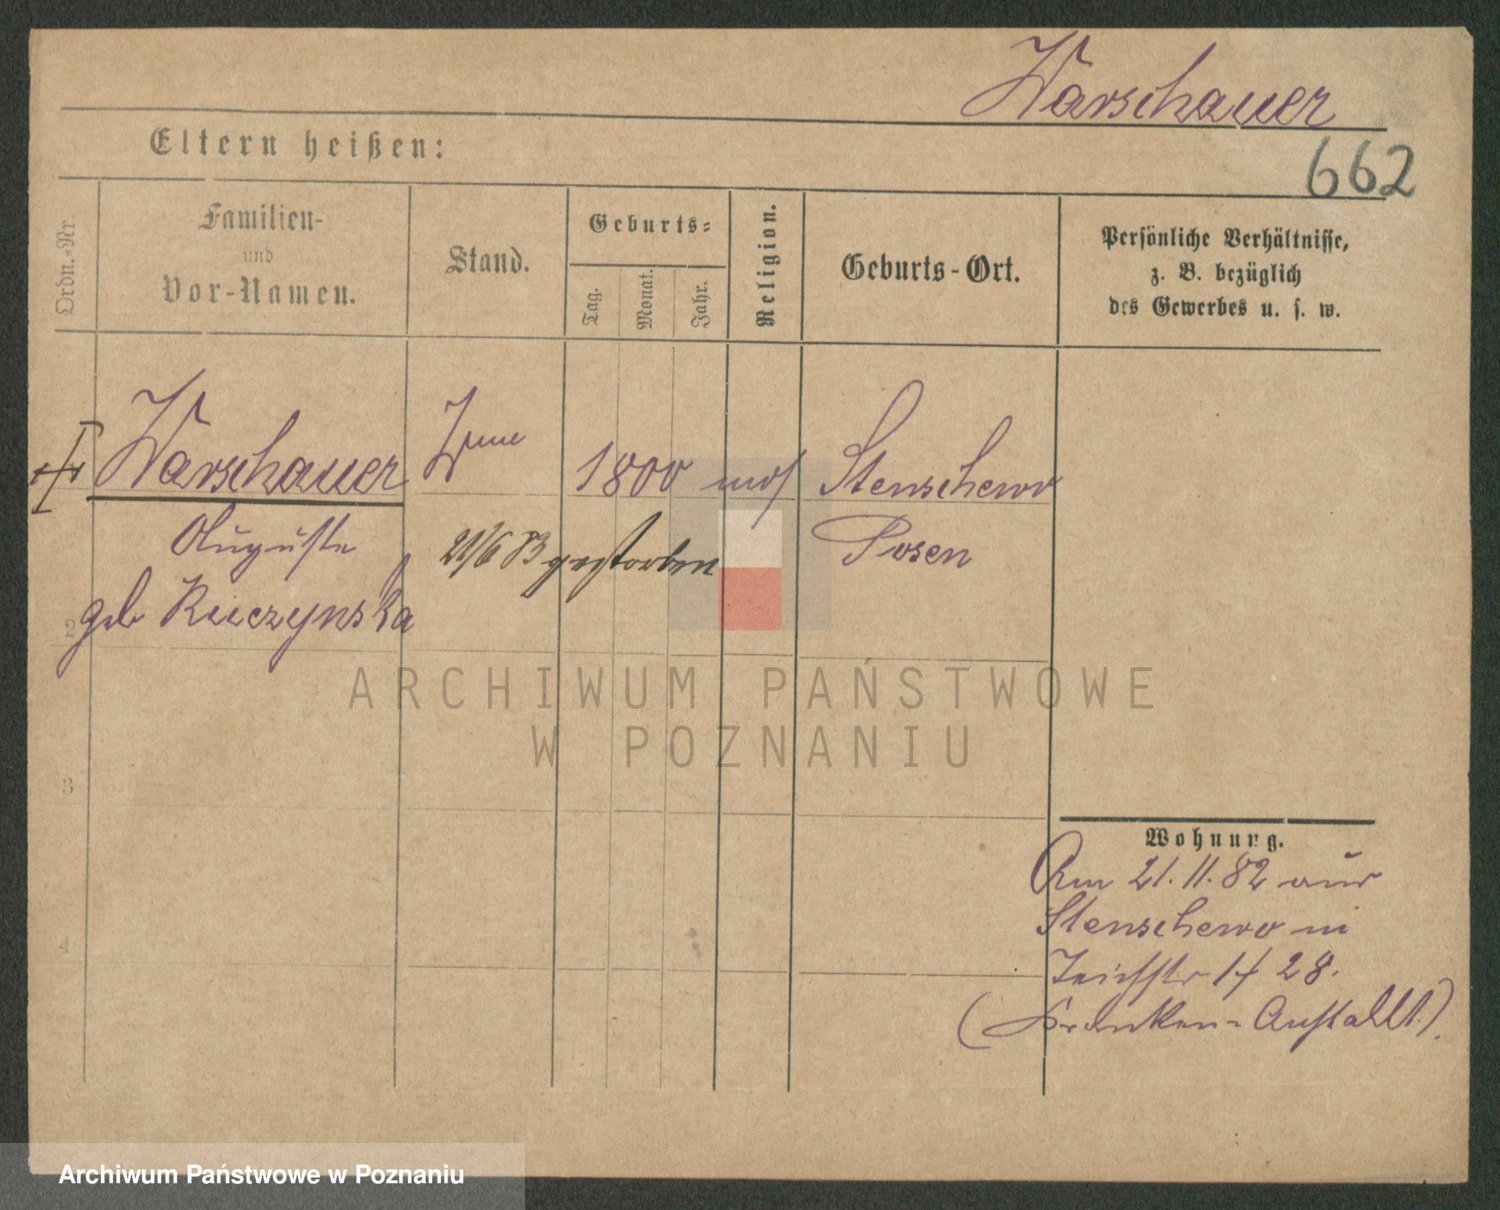 Warschauer
Eltern heißen:
662
Ordn.-Nr.
Familien-
und
Vor-Namen.
Stand.
Geburts-
Tag.
Monat.
Jahr.
Religion.
Geburts-Ort.
Persönliche Verhältnisse,
z. B. bezüglich
des Gewerbes u. s. w.
Warschauer
1800
mos
Stenschewo
Auguste
21/6 83 gestorben
Posen
2
geb Kuczynska
ARCHIWUM PAŃSTWOWE
W POZNANIU
3
Wohnung.
Am 21.11.82 aus
4
Stenschewo in
Teichstr 28.
(Kranken-Anstallt).
Archiwum Państwowe w Poznaniu